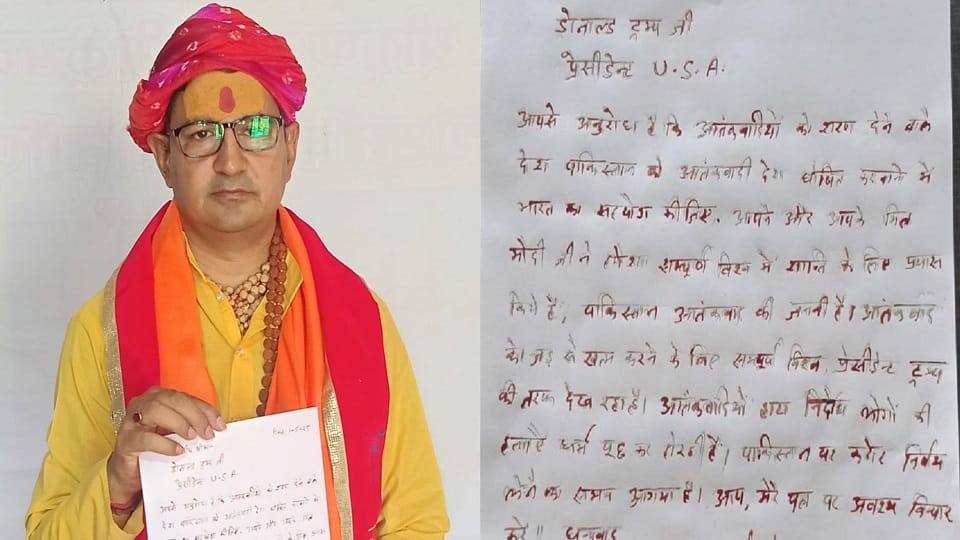 डोनाल्ड ट्रम्प जी
प्रेसीडेन्ट U.S.A.
आपसे अनुरोध है कि आतंकवादियों को शरण देने वाले
देश पाकिस्तान को आतंकवादी देश घोषित करवाने में
भारत का सहयोग कीजिए. आपने और आपके मित्र
मोदी जी ने हमेशा सम्पूर्ण विश्व में शान्ति के लिए प्रयास
किये है, पाकिस्तान आतंकवाद की जननी है। आतंकवाद
को जड़ से खत्म करने के लिए सम्पूर्ण विश्व प्रेसीडेन्ट ट्रम्प
की तरफ देख रहा है। आतंकवादियों द्वारा निर्दोष लोगों की
हत्याऐ धर्म पूछ कर हो रही है। पाकिस्तान पर कठोर निर्णय
लेने का समय आगया है। आप, मेरे पत्र पर अवश्य विचार
करे॥ धन्यवाद
डोनाल्ड ट्रम्प जी
प्रेसीडेन्ट U.S.A.